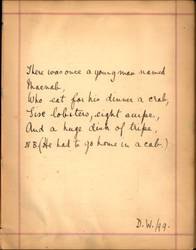 There was once a young man named
Macnab,
Who eat for his dinner a crab,
Six lobsters, eight
And a huge dish of tripe,
N B (He had to go home in a cab.)
D. W. /99.